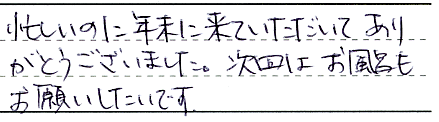 忙しいのに年末に来ていただいて あり
がとうございました。次回は お風呂も
お願いしたいです